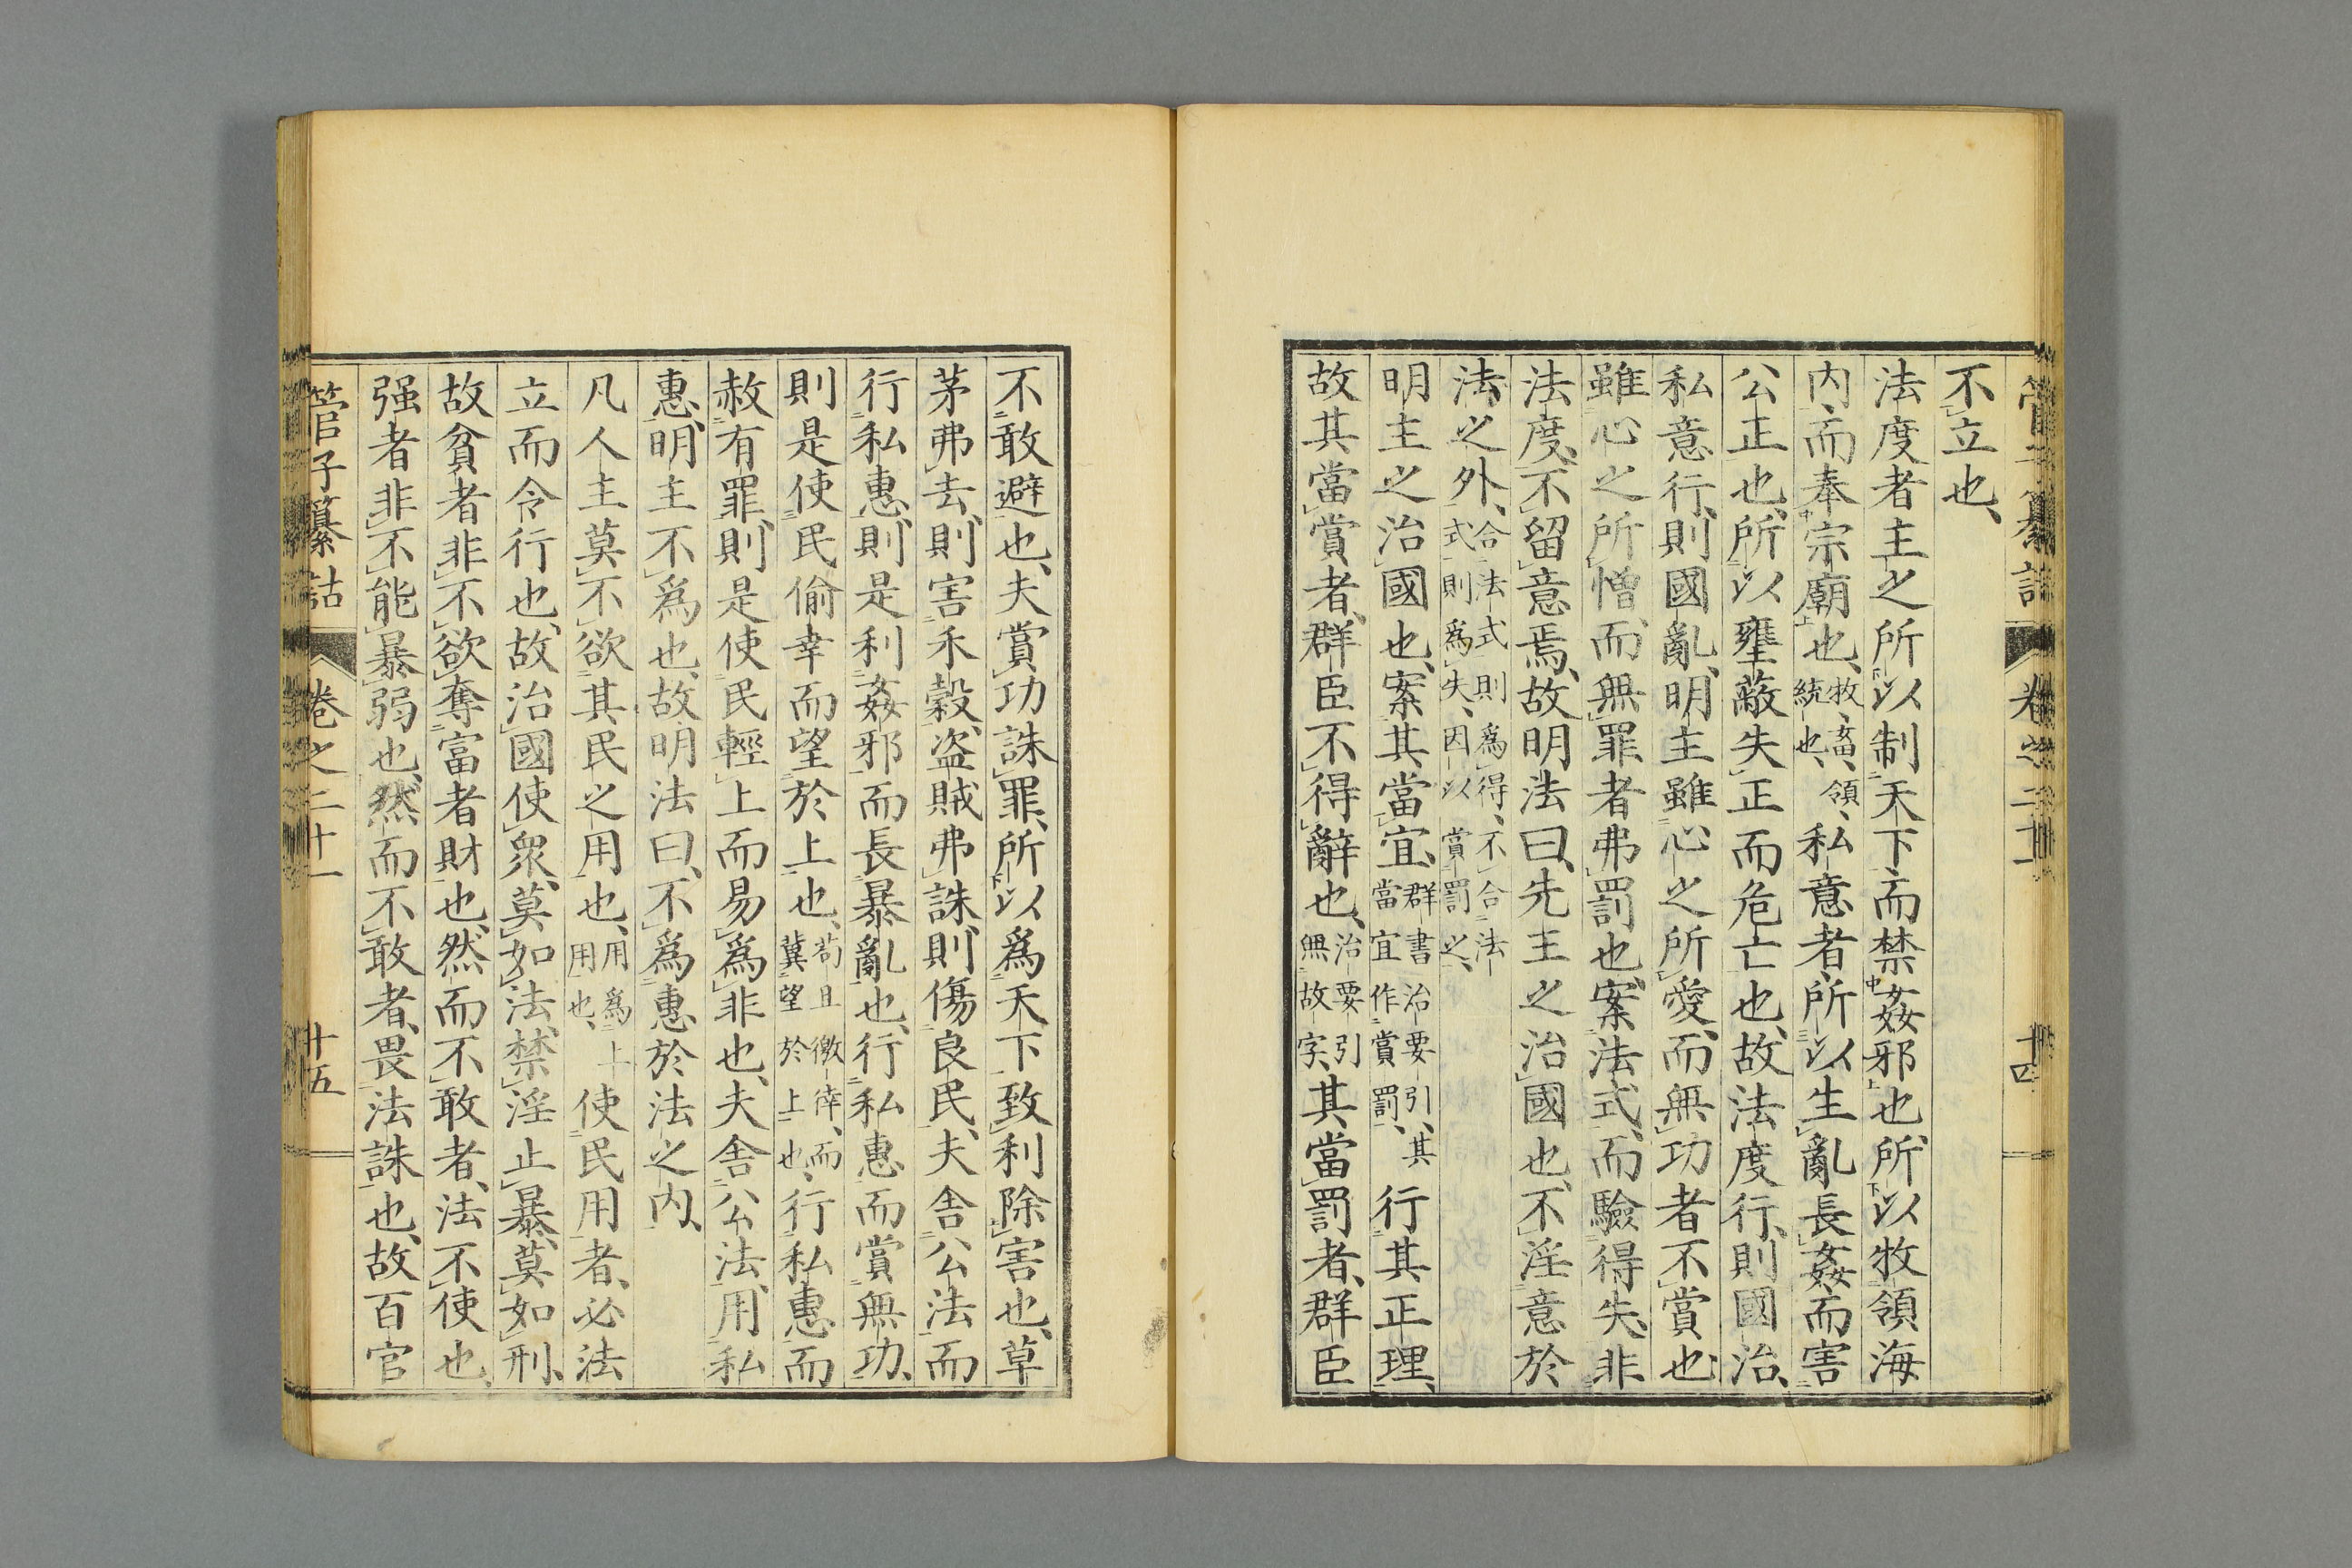 管子纂詁　卷之二十一　十四
不立也、
法度者主之所以制天下、而禁姦邪也、所以牧領海
内、而奉宗廟也、牧、畜、領、統也、私意者、所以生亂長姦、而害
公正也、所以壅蔽失正而危亡也、故法度行、則國治、
私意行、則國亂、明主雖心之所愛、而無功者不賞也
雖心之所憎、而無罪者弗罰也、案法式、而驗得失、非
法度、不留意焉、故明法曰、先王之治國也、不淫意於
法之外、合法式則爲得、不合法式則爲失、因以賞罰之、
明主之治國也、案其當宜、群書治要引、其當宜作賞罰、行其正理、
故其當賞者、群臣不得辭也、治要引無故字、其當罰者、群臣
不敢避也、夫賞功誅罪、所以爲天下致利除害也、草
茅弗去、則害禾穀、盗賊弗誅、則傷良民、夫舎公法而
行私惠、則是利姦邪而長暴亂也、行私惠而賞無功、
則是使民偷幸而望於上也、苟且徼倖、而冀望於上也、行私惠而
赦有罪、則是使民輕上而易爲非也、夫舎公法、用私
惠、明主不爲也、故明法曰、不爲惠於法之内、
凡人主莫不欲其民之用也、用爲上用也、使民用者、必法
立而令行也、故治國使衆、莫如法、禁淫止暴、莫如刑、
故貧者非不欲奪富者財也、然而不敢者、法不使也、
强者非不能暴弱也、然而不敢者、畏法誅也、故百官
管子纂詁　卷之二十一　十五